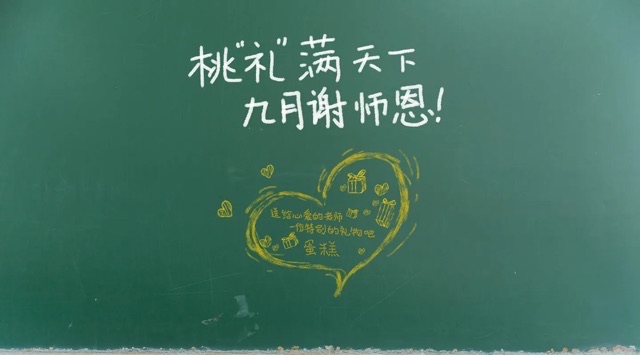 桃“礼”满天下
九月谢师恩!
送给心爱的老师
一份特别的礼物吧
蛋糕